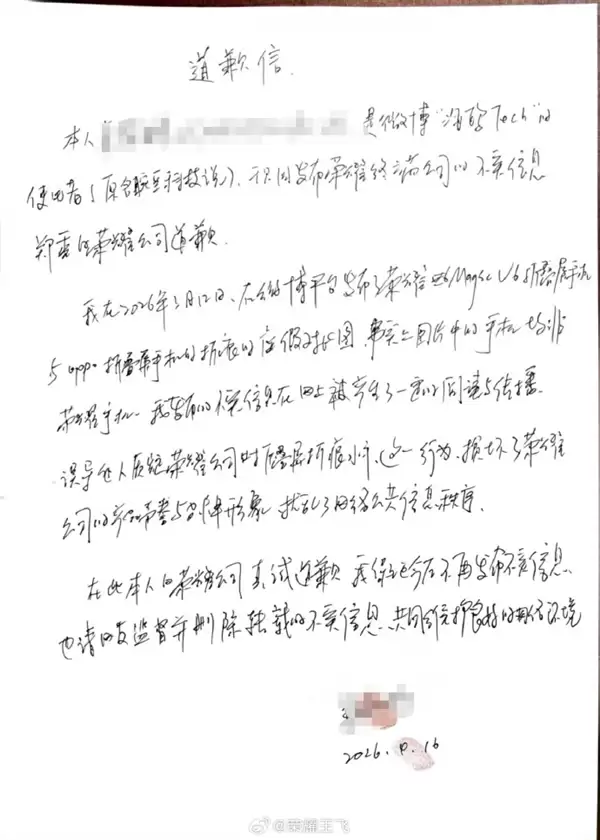 道歉信
本人 是微博“ Tech”的
使用者(原名 科技说),我因发布荣耀终端公司的不实信息
郑重向荣耀公司道歉。
我在2026年3月12日,在微博平台发布了荣耀 Magic V6折叠屏手机
与oppo折叠屏手机的折痕的虚假对比图,事实上图片中的手机均非
荣耀手机。我发布的不实信息在网上被产生了一定的阅读与传播,
误导他人质疑荣耀公司 折叠屏折痕水平,这一行为,损坏了荣耀
公司的产品声誉与品牌形象,扰乱了网络公共信息秩序。
在此本人向荣耀公司真诚道歉,我保证今后不再发布不实信息,
也请网友监督并删除转载的不实信息,共同维护良好的网络环境
2026. 16
@荣耀王飞